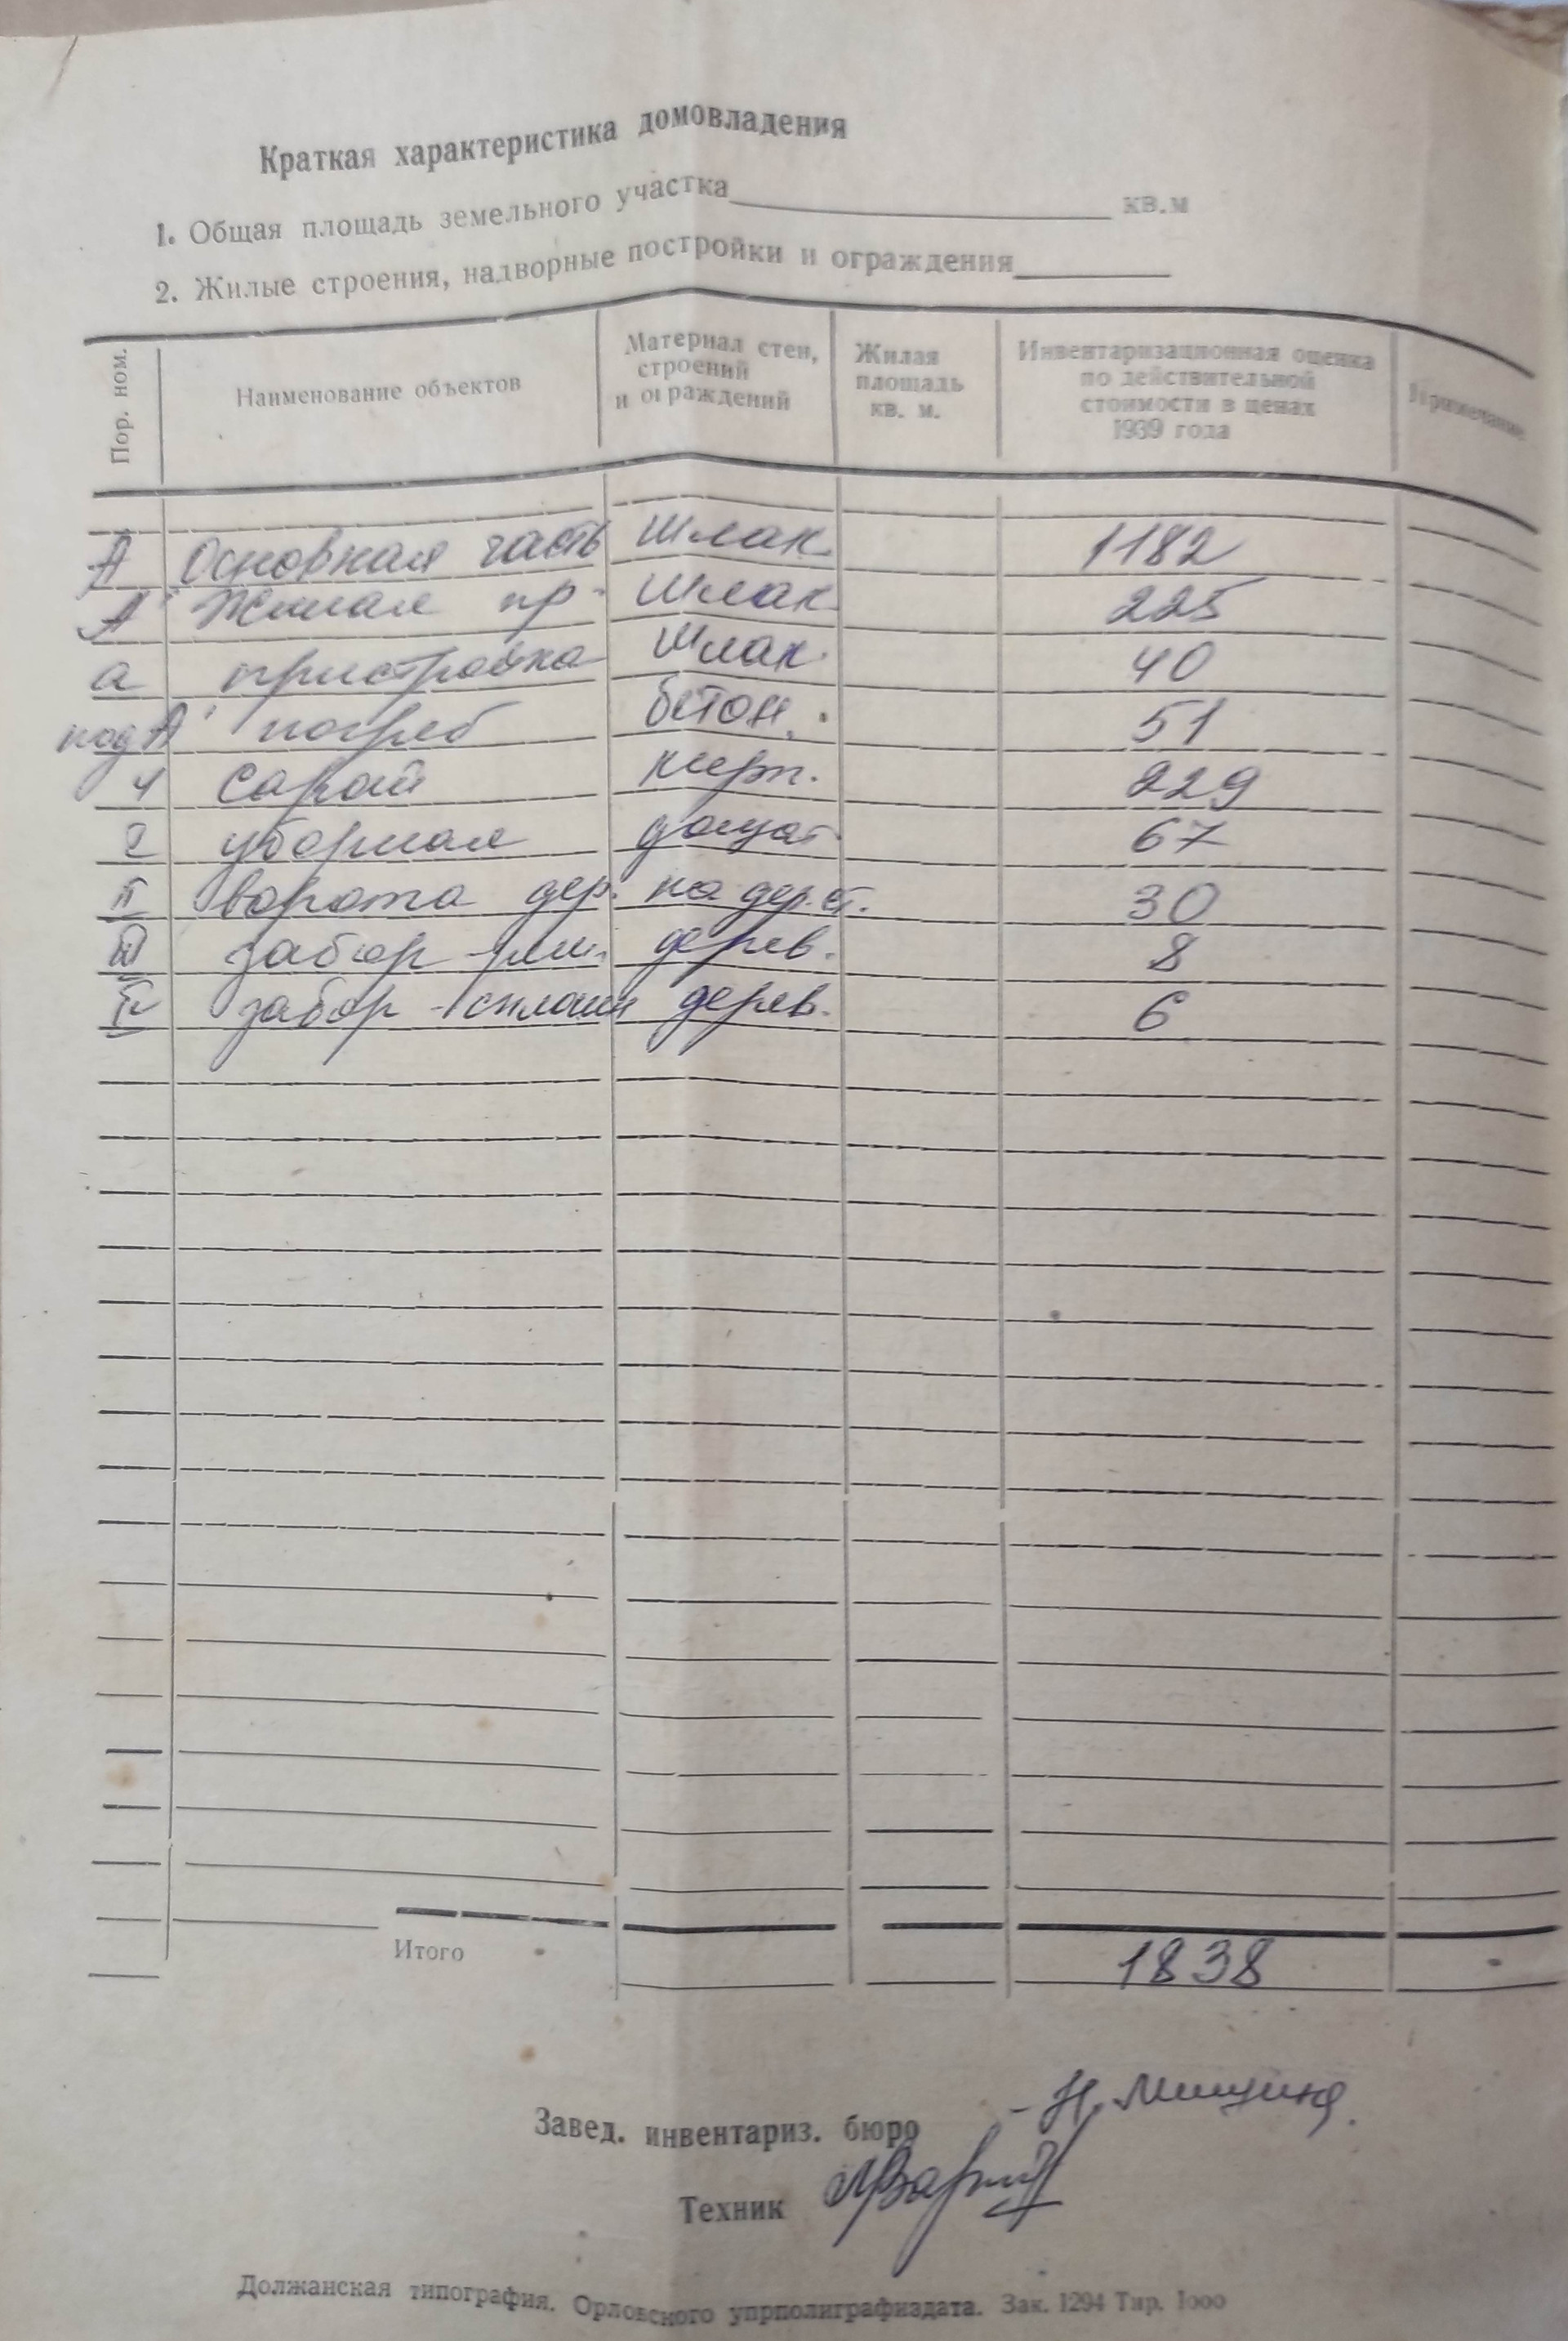 Краткая характеристика домовладения
1. Общая площадь земельного участка кв.м
2. Жилые строения, надворные постройки и ограждения
Пор. ном.
Наименование объектов
Материал стен,
строений
и ограждений
Жилая
площадь
кв. м.
Инвентаризационная оценка
по действительной
стоимости в ценах
1939 года
Примечание
А Основная часть Шлак 1182
А' Жилая пр. Шлак 225
а пристройка Шлак. 40
под А' погреб бетон. 51
ч Сарай кирп. 229
I уборная дощат 67
II ворота дер. на дер. ст. 30
III забор дерев. 8
IV забор - сплош дерев. 6
Итого 1838
Завед. инвентариз. бюро
Техник
Должанская типография. Орловского упрполиграфиздата. Зак. 1294 Тир. 1000